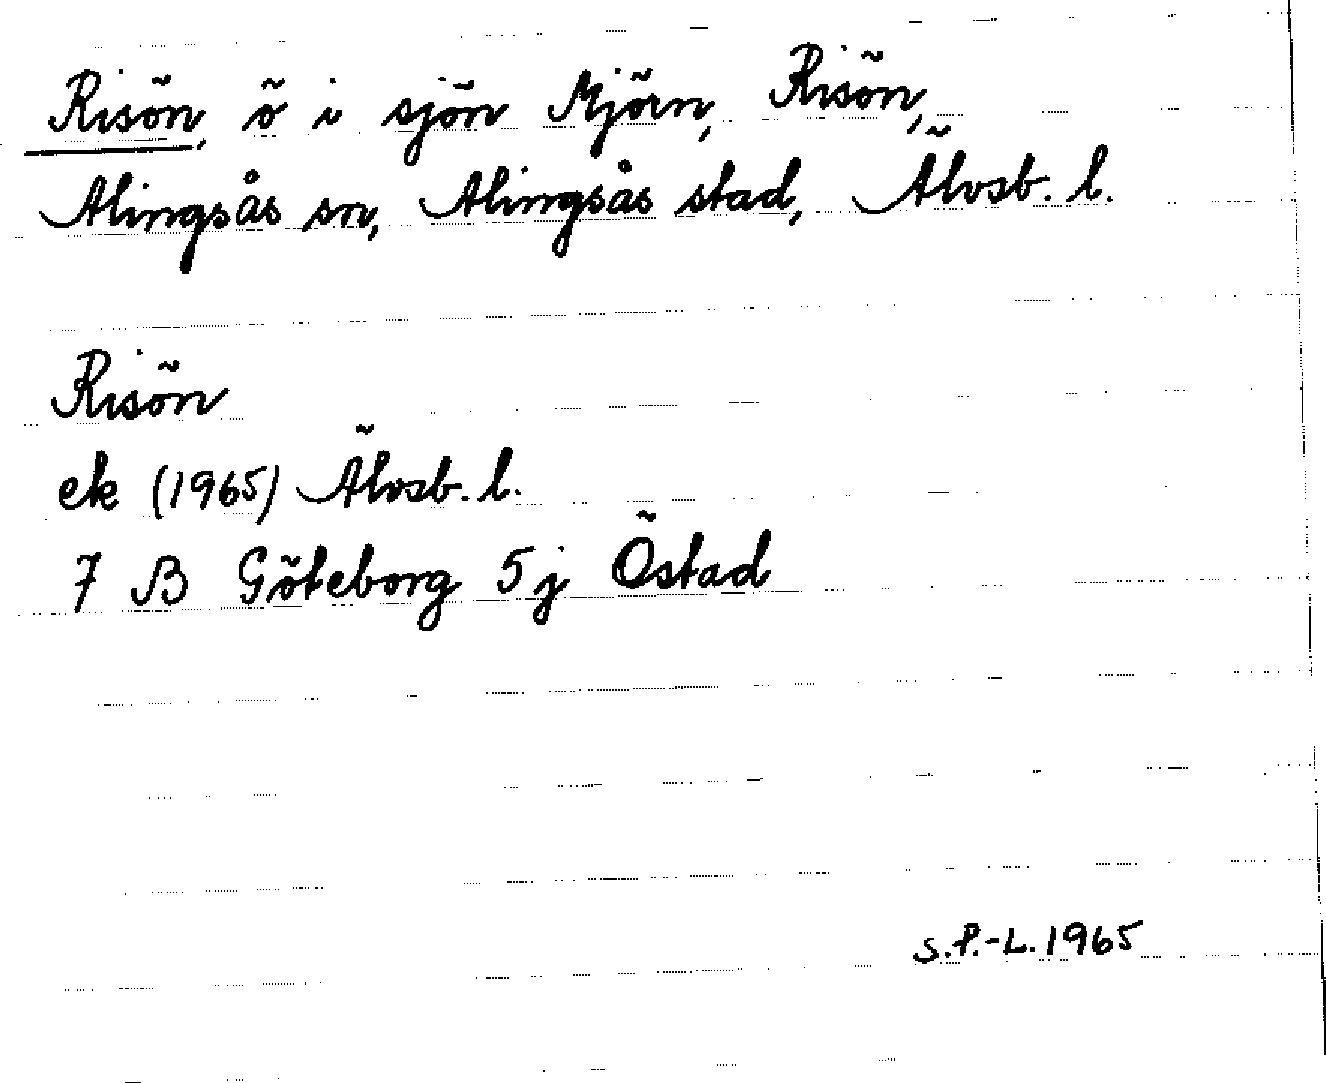 Risön, ö i sjön Mjörn, Risön,
Alingsås sn, Alingsås stad, Älvsb. l.
Risön
ek (1965) Älvsb. l.
7 B Göteborg 5 j Östad
S.P.-L. 1965